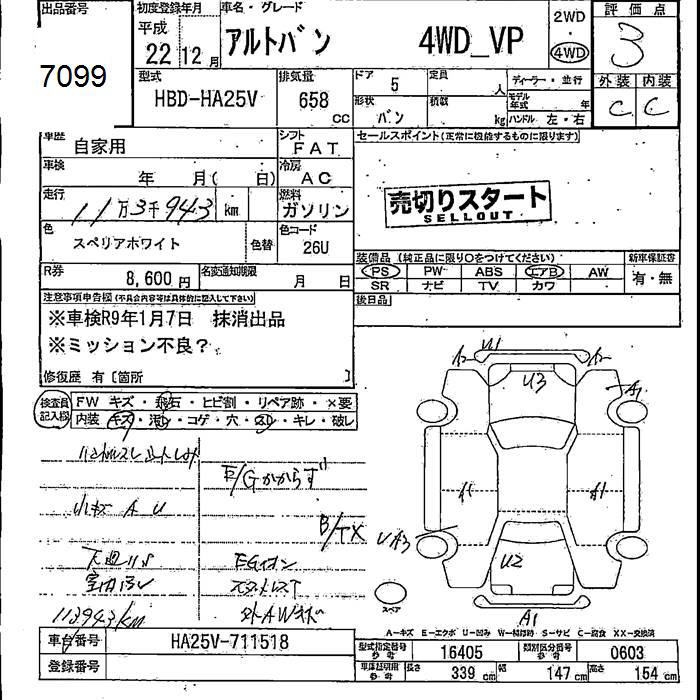 出品番号
7099
初度登録年月
平成
22年12月
車名・グレード
アルトバン 4WD_VP
2WD
・
4WD
評価点
3
外装 内装
C C
型式
HBD-HA25V
排気量
658 cc
ドア 5
定員 人
ディーラー・並行
モデル年式 年
形状 バン
積載 kg
ハンドル 左・右
車歴 自家用
シフト FAT
車検 年 月( 日)
冷房 AC
走行 11万3千943 km
燃料 ガソリン
色 スペリアホワイト
色替
色コード 26U
R券 8,600円
名変通知期限 月 日
セールスポイント(正常に機能するものに限ります)
売切りスタート
SELLOUT
装備品 (純正品に限り○をつけてください)
新車保証書
PS PW ABS エアB AW
SR ナビ TV カワ
有・無
後日品
注意事項申告図(不具合内容等は具体的に記入して下さい)
※車検R9年1月7日 抹消出品
※ミッション不良?
修復歴 有[箇所 ]
検査員記入欄
FW キズ・飛石・ヒビ割・リペア跡・×要
内装 キズ・汚れ・コゲ・穴・スレ・キレ・破レ
E/Gかからず
小キズ A U
B/TX
113943km
U1
U3
A1
A1
A1
UA3
U2
A1
スペア
A-キズ E-エクボ U-凹み W-補修跡 S-サビ C-腐食 XX-交換済
車台番号 HA25V-711518
登録番号
型式指定番号参考 16405
類別区分番号参考 0603
車庫証明用参考 長さ 339cm 幅 147cm 高さ 154cm